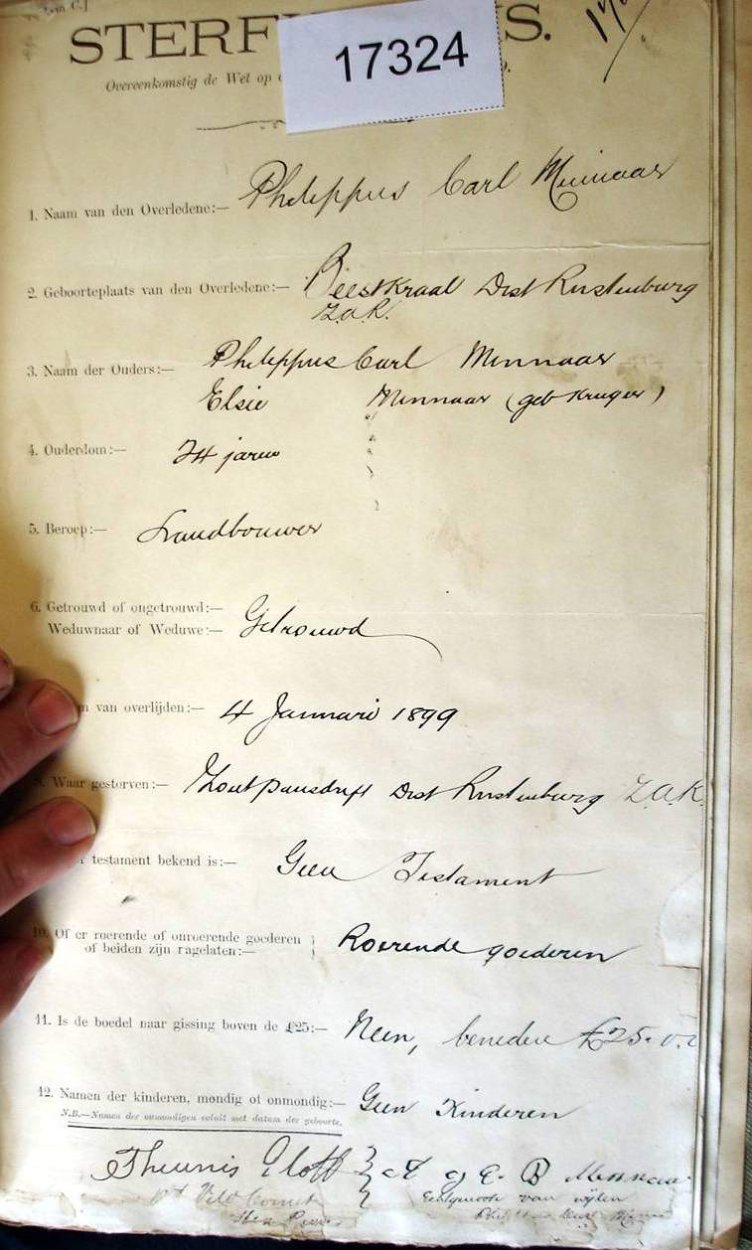 STERF S.
17324
Overeenkomstig de Wet op
1. Naam van den Overledene:— Philippus Carl Minnaar
2. Geboorteplaats van den Overledene:— Beestkraal Dist Rustenburg
Z.A.R.
3. Naam der Ouders:— Philippus Carl Minnaar
Elsie Minnaar (geb Kruger)
4. Ouderdom:— 34 jaren
5. Beroep:— Landbouwer
6. Getrouwd of ongetrouwd:—
Weduwnaar of Weduwe:— Getrouwd
van overlijden:— 4 Januari 1899
8. Waar gestorven:— Zoutpansdrift Dist Rustenburg Z.A.R.
testament bekend is:— Geen Testament
10. Of er roerende of onroerende goederen
of beiden zijn ragelaten:— Roerende goederen
11. Is de boedel naar gissing boven de £25:— Neen, beneden £25.
12. Namen der kinderen, mondig of onmondig:— Geen Kinderen
N.B.—Namen der onmondigen voluit met datum der geboorte.
Theunis Eloff E. B Minnaar
Veld Cornet Echtgenoote van wijlen
Hex Rivier